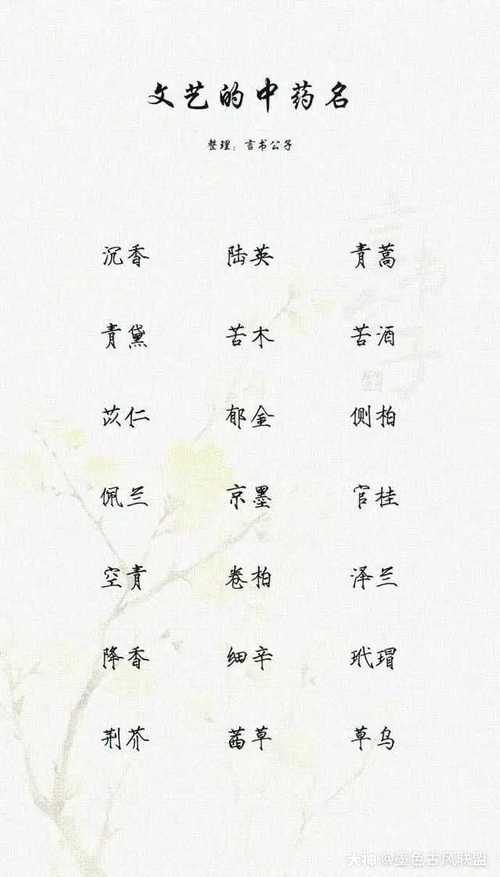 文艺的中药名
整理：言书公子
沉香 陆英 青蒿
青黛 苦木 苦酒
苡仁 郁金 侧柏
佩兰 京墨 官桂
空青 卷柏 泽兰
降香 细辛 玳瑁
荆芥 茜草 草乌
大神@墨色古风联盟